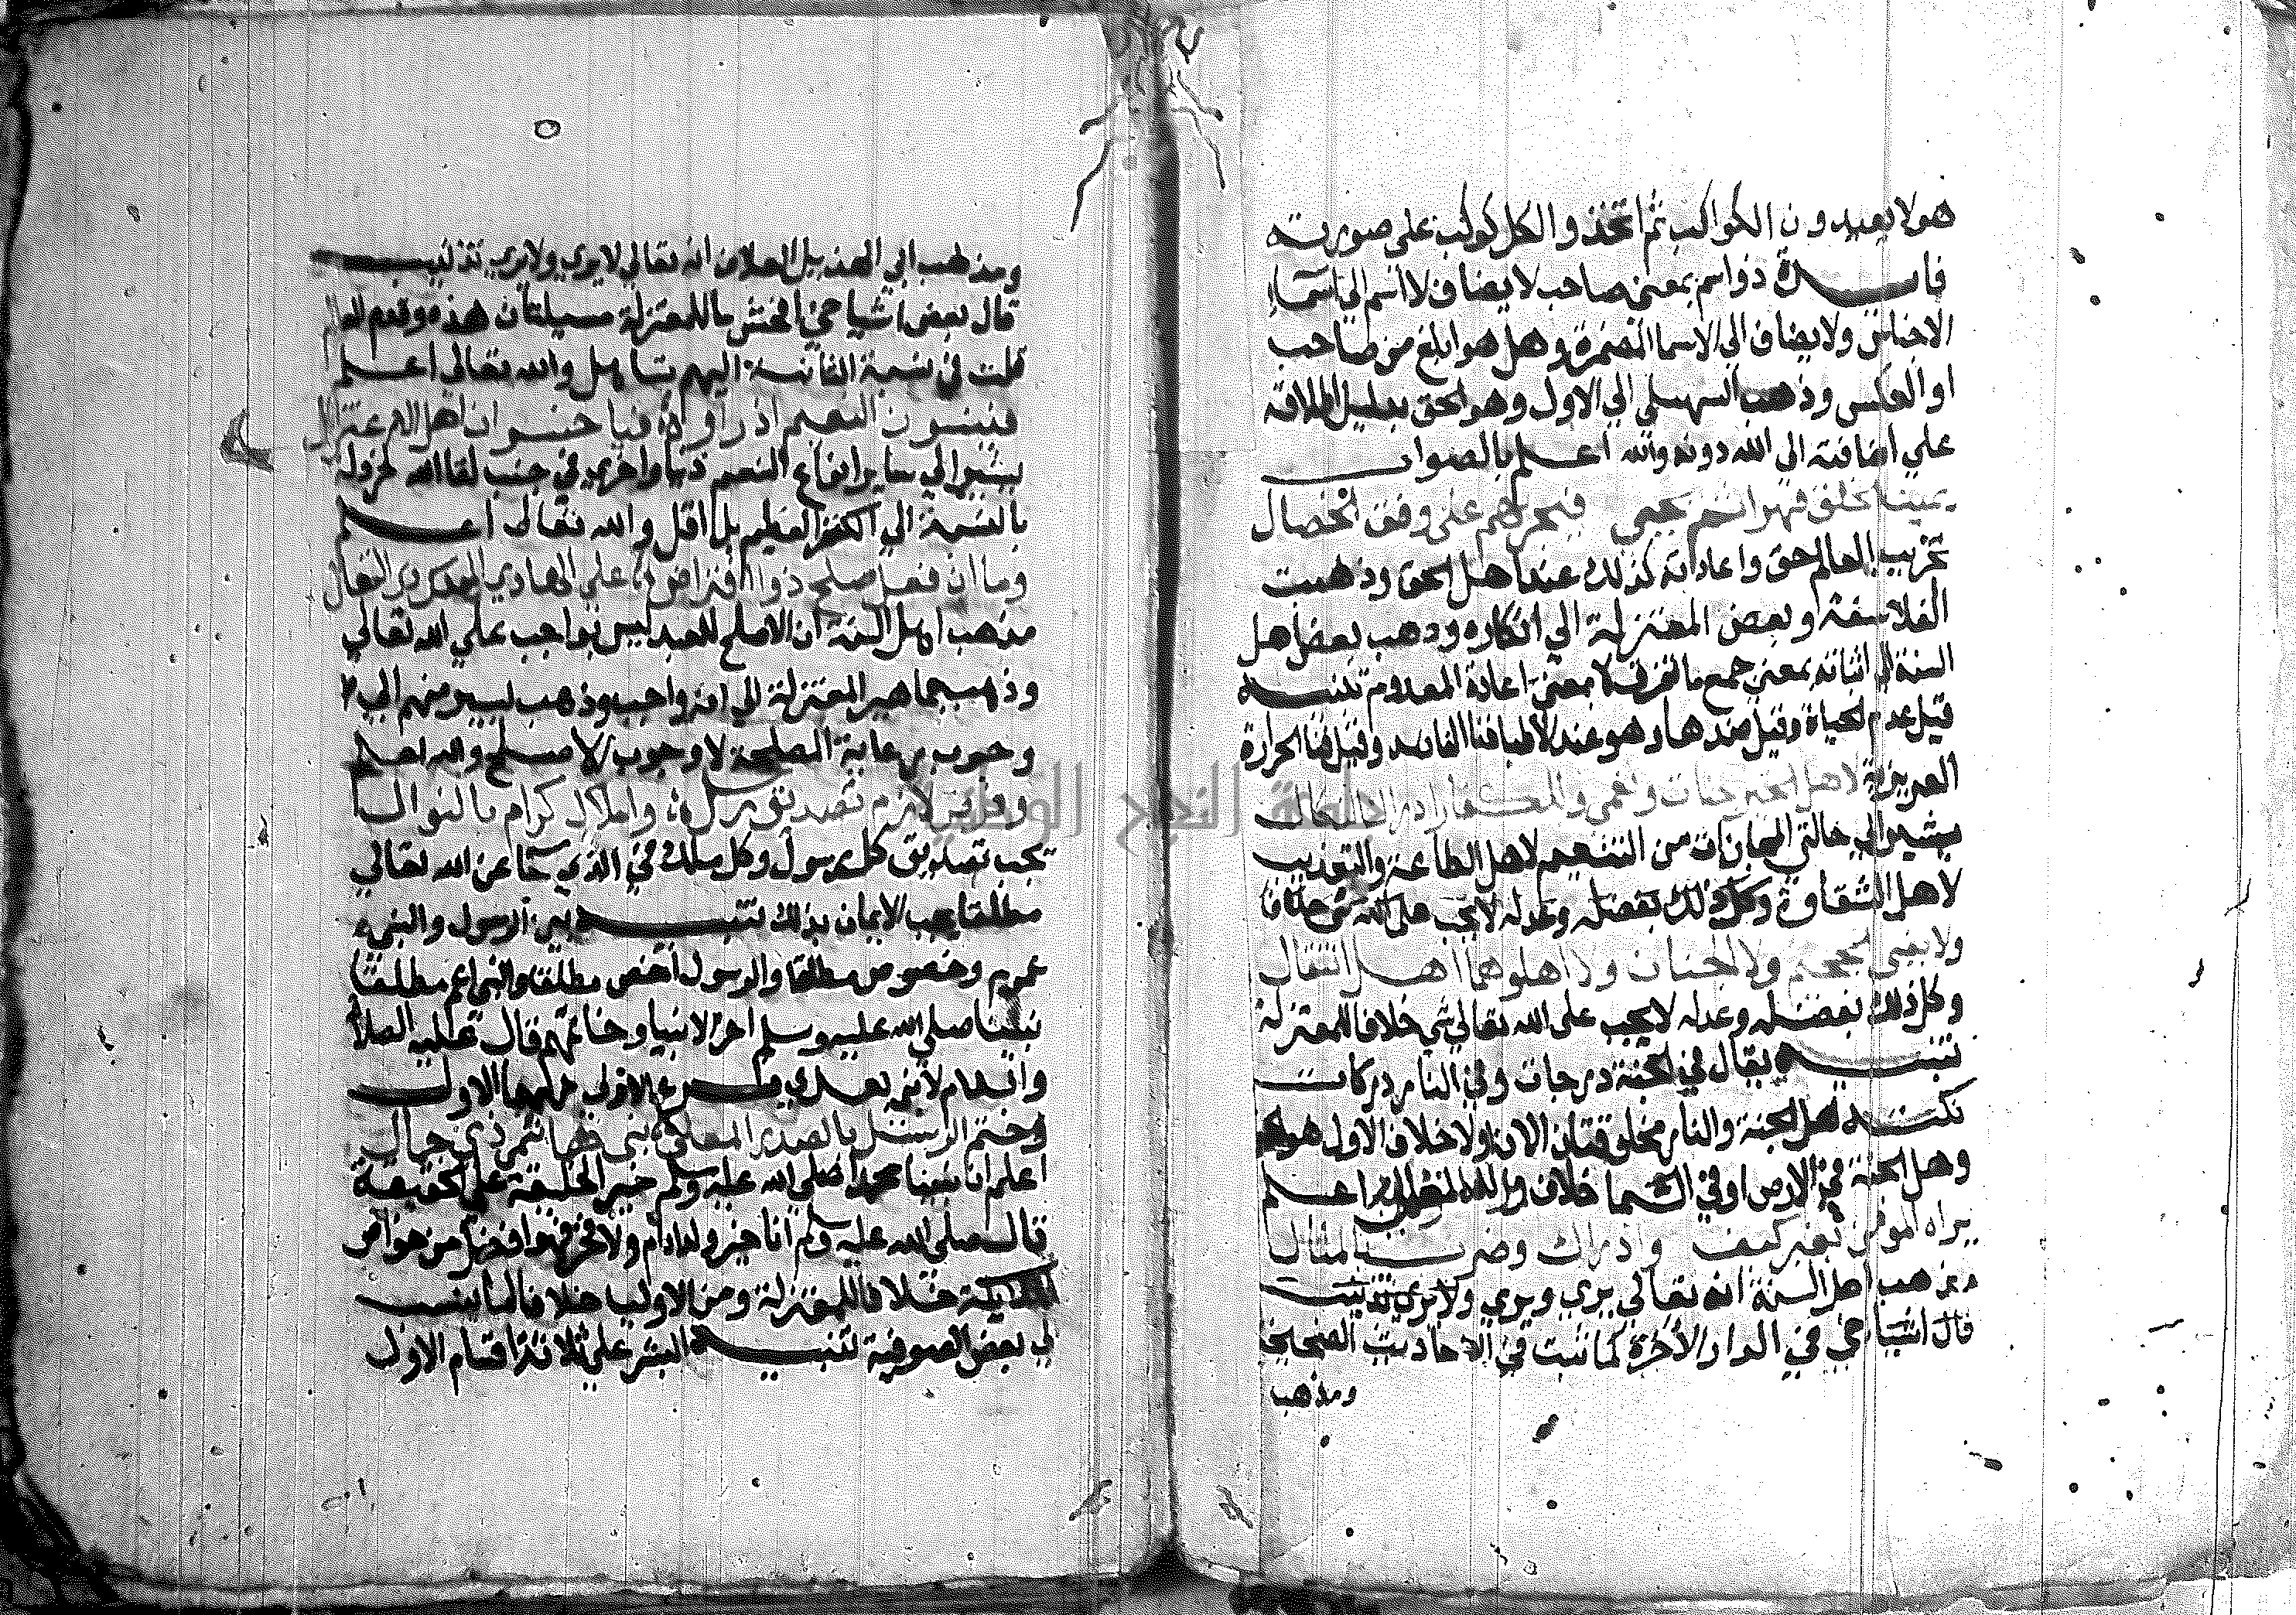 هولا يعبدون الكواكب ثم اتخذوا لكل كوكب على صورته
فايـــدة ذو اسم بمعنى صاحب لا يضاف الا اسم الى اسماء
الاجناس ولا يضاف الى الاسما المضمرة وهل هو ابلغ من صاحب
او العكس وذهب السهيلي الي الاول وهو الحق بدليل اطلاقه
علي اضافته الي الله دونه والله اعـــلم بالصواب
يميت الخلق قهرا ثم يحيي فيجزيهم على وفق الخصال
تخريب العالم حق واعادته كذلك عند اهل الحق وذهبت
الفلاسفة وبعض المعتزلة الي انكاره وذهب بعض اهل
السنة الي اثباته بمعنى جمع ما تفرق لا بمعنى اعادة المعدوم تنبيـــه
قيل عدم الحياة وقيل ضدها وهو عند الاطبا فنا وقيل فنا الحرارة
الغريزية لاهل الخير جنات ونعمى وللكفار ادراك النكال
يشير الي حالتي المجازات من التنعيم لاهل الطاعة والتعذيب
لاهل الشقاوة وكل ذلك بفضله وعدله لا يجب على الله شي خلافا
ولا يفنى الجحيم ولا الجنان ولا اهلوهما اهـــل انتقال
وكل ذلك بفضله وعدله لا يجب على الله تعالي شي خلافا للمعتزلة
تنبيـــه يقال في الجنة درجات وفي النار دركات
نكتـــة هل الجنة والنار مخلوقتان الان اولا خلاف الاول هو الحق
وهل الجنة في الارض او في السما خلاف اعـــلم
يراه المومنون بغير كيف وادراك وضرب من مثال
مذهب اهل السنة انه تعالي يري ويري
قال اشياخي في الدار الاخرة كما ثبت في الاحاديث الصحاح
ومذهب
ومذهب ابي الهذيل العلاف انه تعالي لا يري ولا يري تذنيب
قال بعض اشياخي افحش ما للمعتزلة مسيلتان هذه وقدم العالم
قلت في نسبة الثانية اليهم تساهل والله تعالى اعـــلم
فينسون النعيم اذا راوه فيا خسران اهل الاعتزال
يشير الي ساير انواع النعيم دنيا واخري في جنب لقا الله
بالنسبة الي الكنز العظيم بل اقل والله تعالى اعـــلم
وما ان فعل اصلح ذو افتراض على الهادي المقدس ذي التعال
مذهب اهل السنة ان الاصلح للعبد ليس بواجب علي الله تعالي
وذهب جماهير المعتزلة الي انه واجب وذهب يسير منهم الي
وجوب رعاية المصلحة لا وجوب الاصلح والله اعلم
وفرض لازم تصديق رسل واملاك كرام بالنوال
يجب تصديق كل رسول وكل ملك في الذي جا عن الله تعالي
مطلقا يجب الايمان بذلك تنبيـــه بين الرسول والنبي
عموم وخصوص مطلقا والرسول اخص مطلقا والنبي اعم مطلقا
نبينا صلى الله عليه وسلم اخر الانبيا وخاتمهم قال عليه الصلاة
والسلام لا نبي بعدي
وختم الرسل بالصدر المعلى نبي هاشمي ذي جمال
اعلم ان نبينا محمدا صلى الله عليه وسلم خير الخليقة على الحقيقة
قال صلى الله عليه وسلم انا خير ولد ادم ولا فخر فهو افضل من خواص
الملايكة خلافا للمعتزلة ومن الاوليا خلافا لما ينسب
الي بعض الصوفية تنبيـــه البشر على ثلاثة اقسام الاول